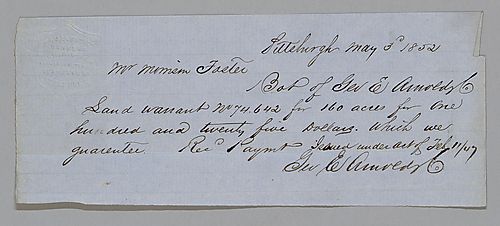 Pittsburgh May 3d 1852
Mr Morrison Foster
Bot of Geo E Arnold & Co
Land warrant No 74.642 for 160 acres for One
hundred and twenty five Dollars. Which we
guarentee. Recd Paymt Issued under act of Feb 11/47
Geo, E, Arnold & Co